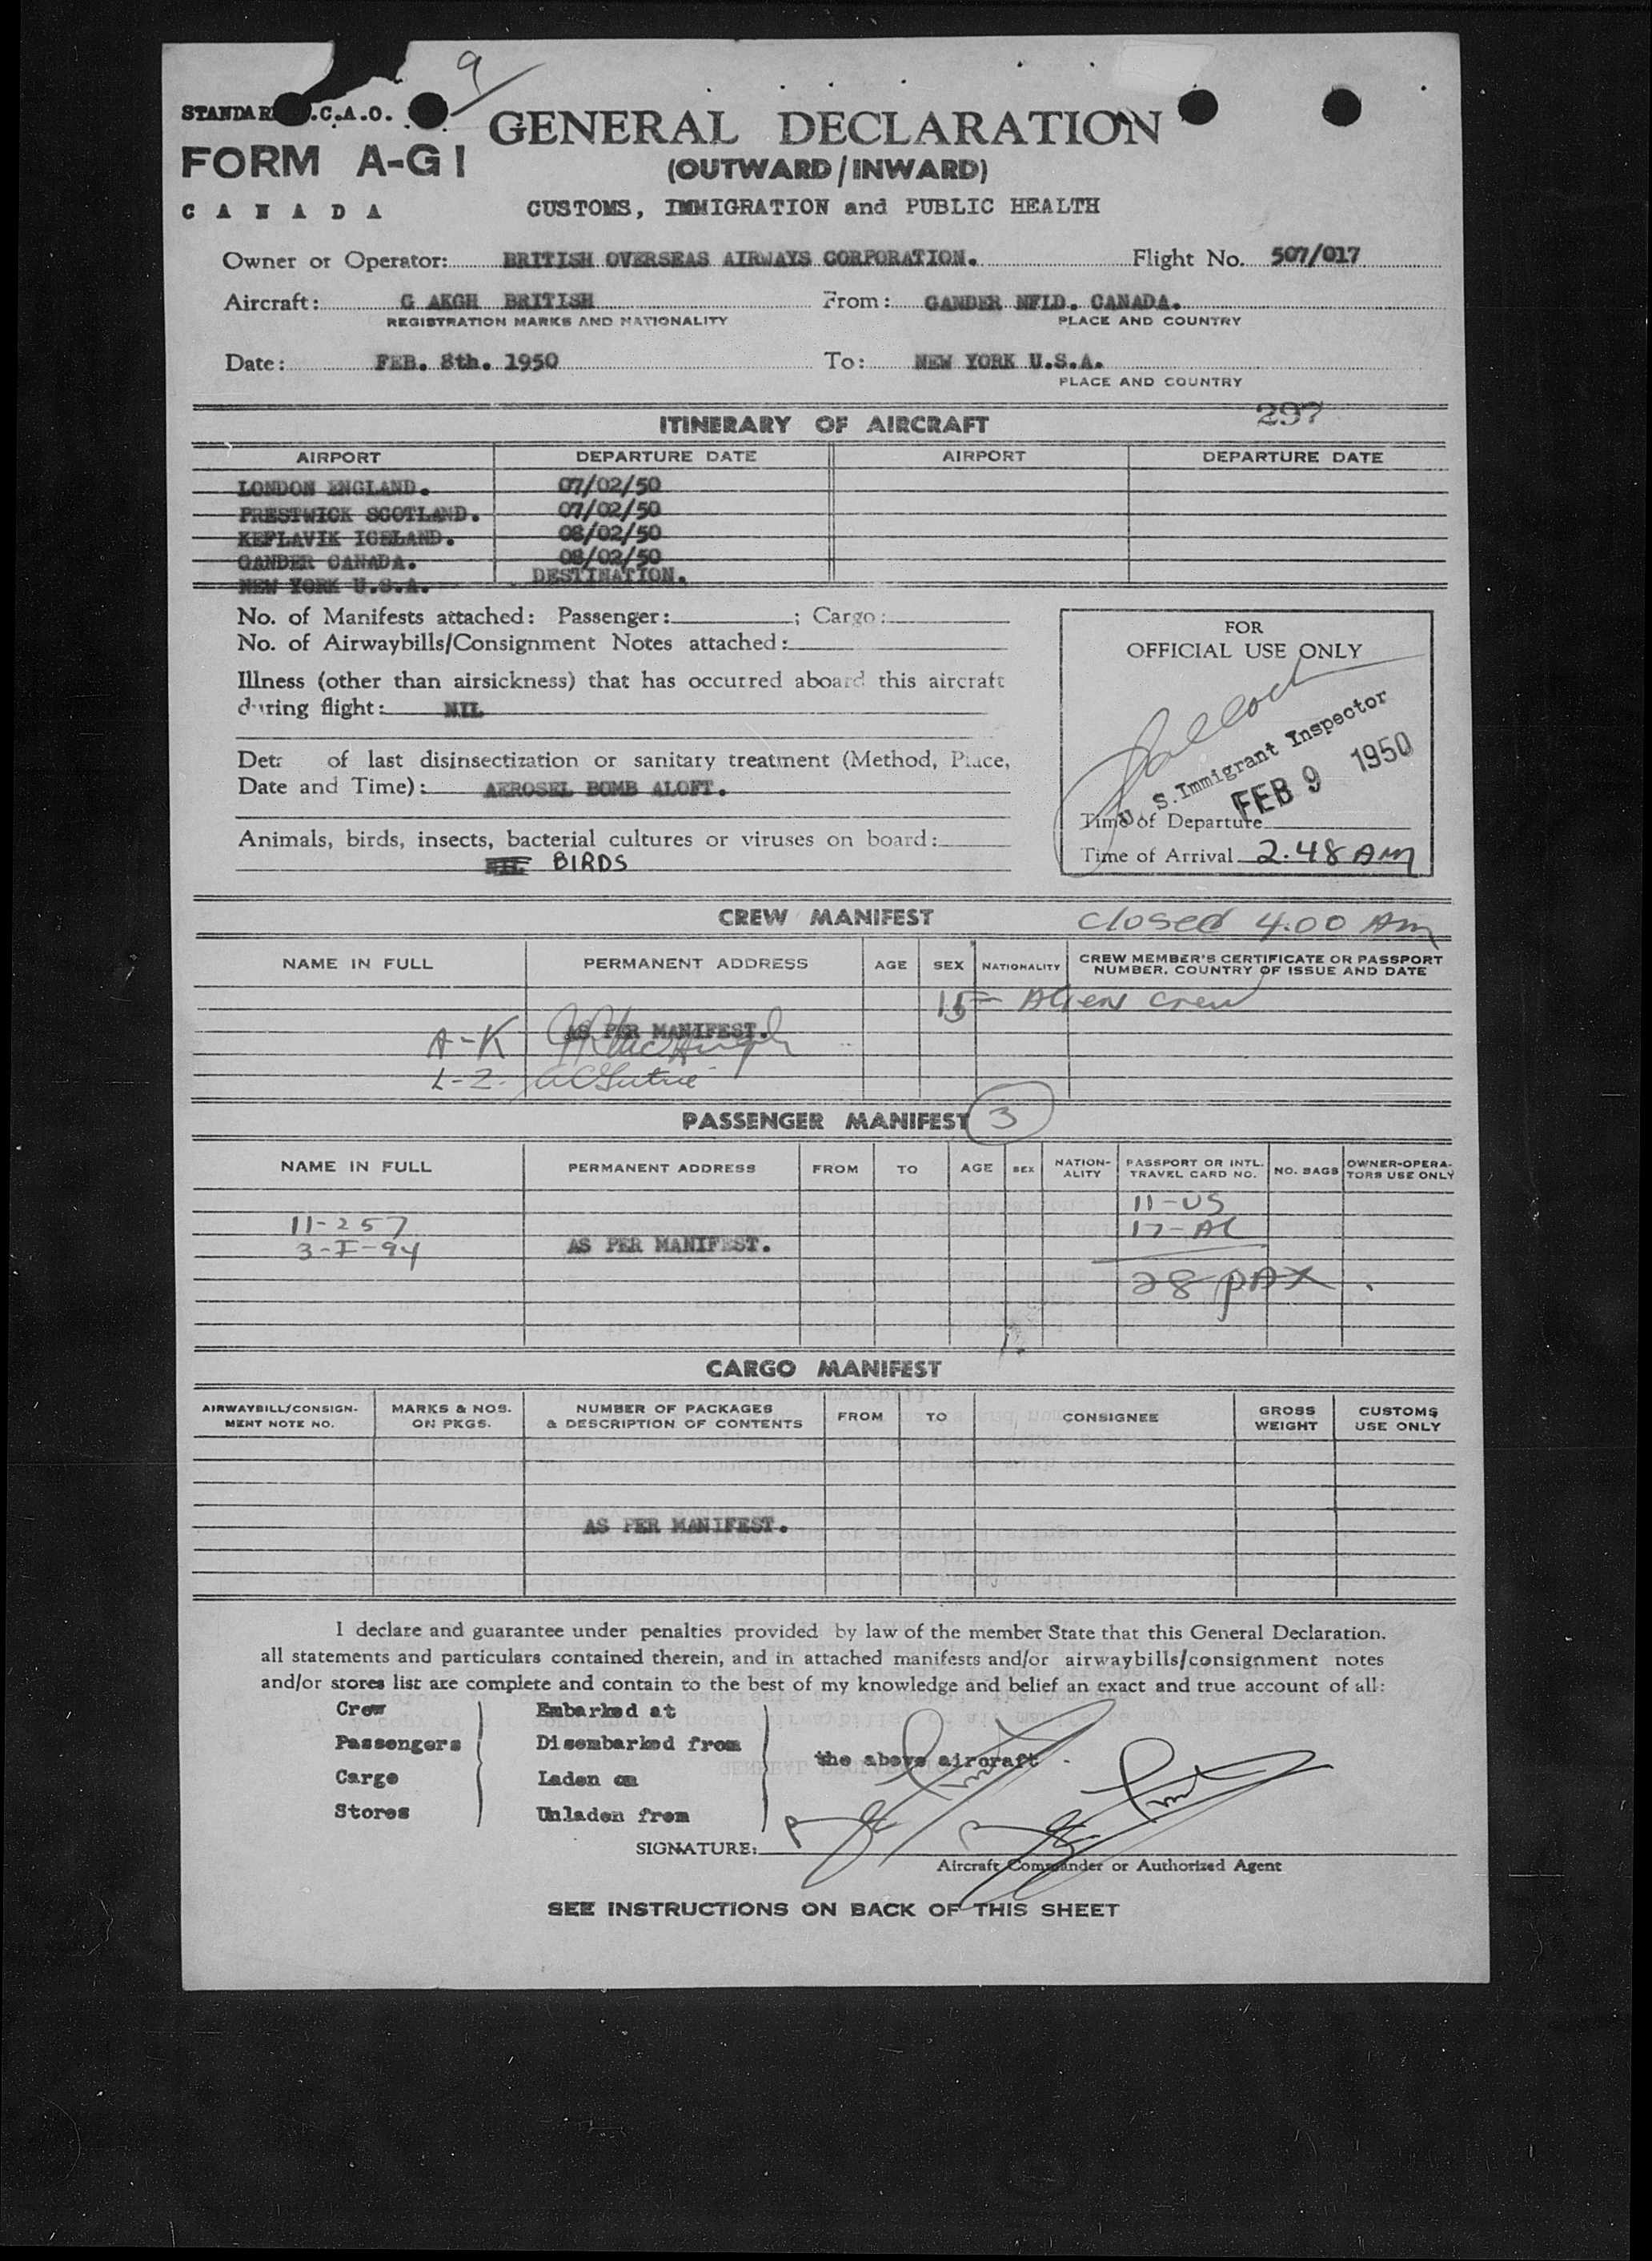 9
STANDARD I.C.A.O.
FORM A-G1
CANADA
GENERAL DECLARATION
(OUTWARD/INWARD)
CUSTOMS, IMMIGRATION and PUBLIC HEALTH
Owner or Operator: BRITISH OVERSEAS AIRWAYS CORPORATION. Flight No. 507/017
Aircraft: G AKGH BRITISH From: GANDER NFLD. CANADA.
REGISTRATION MARKS AND NATIONALITY PLACE AND COUNTRY
Date: FEB. 8th. 1950 To: NEW YORK U.S.A.
PLACE AND COUNTRY
297
ITINERARY OF AIRCRAFT
AIRPORT DEPARTURE DATE AIRPORT DEPARTURE DATE
LONDON ENGLAND. 07/02/50
PRESTWICK SCOTLAND. 07/02/50
KEFLAVIK ICELAND. 08/02/50
GANDER CANADA. 08/02/50
NEW YORK U.S.A. DESTINATION.
No. of Manifests attached: Passenger: ; Cargo:
No. of Airwaybills/Consignment Notes attached:
Illness (other than airsickness) that has occurred aboard this aircraft
during flight: NIL
of last disinsectization or sanitary treatment (Method, Place,
Date and Time): AEROSEL BOMB ALOFT.
Animals, birds, insects, bacterial cultures or viruses on board:
NIL BIRDS
FOR
OFFICIAL USE ONLY
U. S. Immigrant Inspector
FEB 9 1950
Time of Departure
Time of Arrival 2.48 AM
CREW MANIFEST closed 4.00 AM
NAME IN FULL PERMANENT ADDRESS AGE SEX NATIONALITY CREW MEMBER'S CERTIFICATE OR PASSPORT NUMBER. COUNTRY OF ISSUE AND DATE
15 - Aliens Crew
A-K AS PER MANIFEST.
L-Z.
PASSENGER MANIFEST 3
NAME IN FULL PERMANENT ADDRESS FROM TO AGE SEX NATION-ALITY PASSPORT OR INTL. TRAVEL CARD NO. NO. BAGS OWNER-OPERA-TORS USE ONLY
11-US
11-257 17-AL
3-I-94 AS PER MANIFEST.
28 PAX
CARGO MANIFEST
AIRWAYBILL/CONSIGN-MENT NOTE NO. MARKS & NOS. ON PKGS. NUMBER OF PACKAGES & DESCRIPTION OF CONTENTS FROM TO CONSIGNEE GROSS WEIGHT CUSTOMS USE ONLY
AS PER MANIFEST.
I declare and guarantee under penalties provided by law of the member State that this General Declaration.
all statements and particulars contained therein, and in attached manifests and/or airwaybills/consignment notes
and/or stores list are complete and contain to the best of my knowledge and belief an exact and true account of all:
Crew Embarked at
Passengers Disembarked from the above aircraft
Cargo Laden on
Stores Unladen from
SIGNATURE:
Aircraft Commander or Authorized Agent
SEE INSTRUCTIONS ON BACK OF THIS SHEET